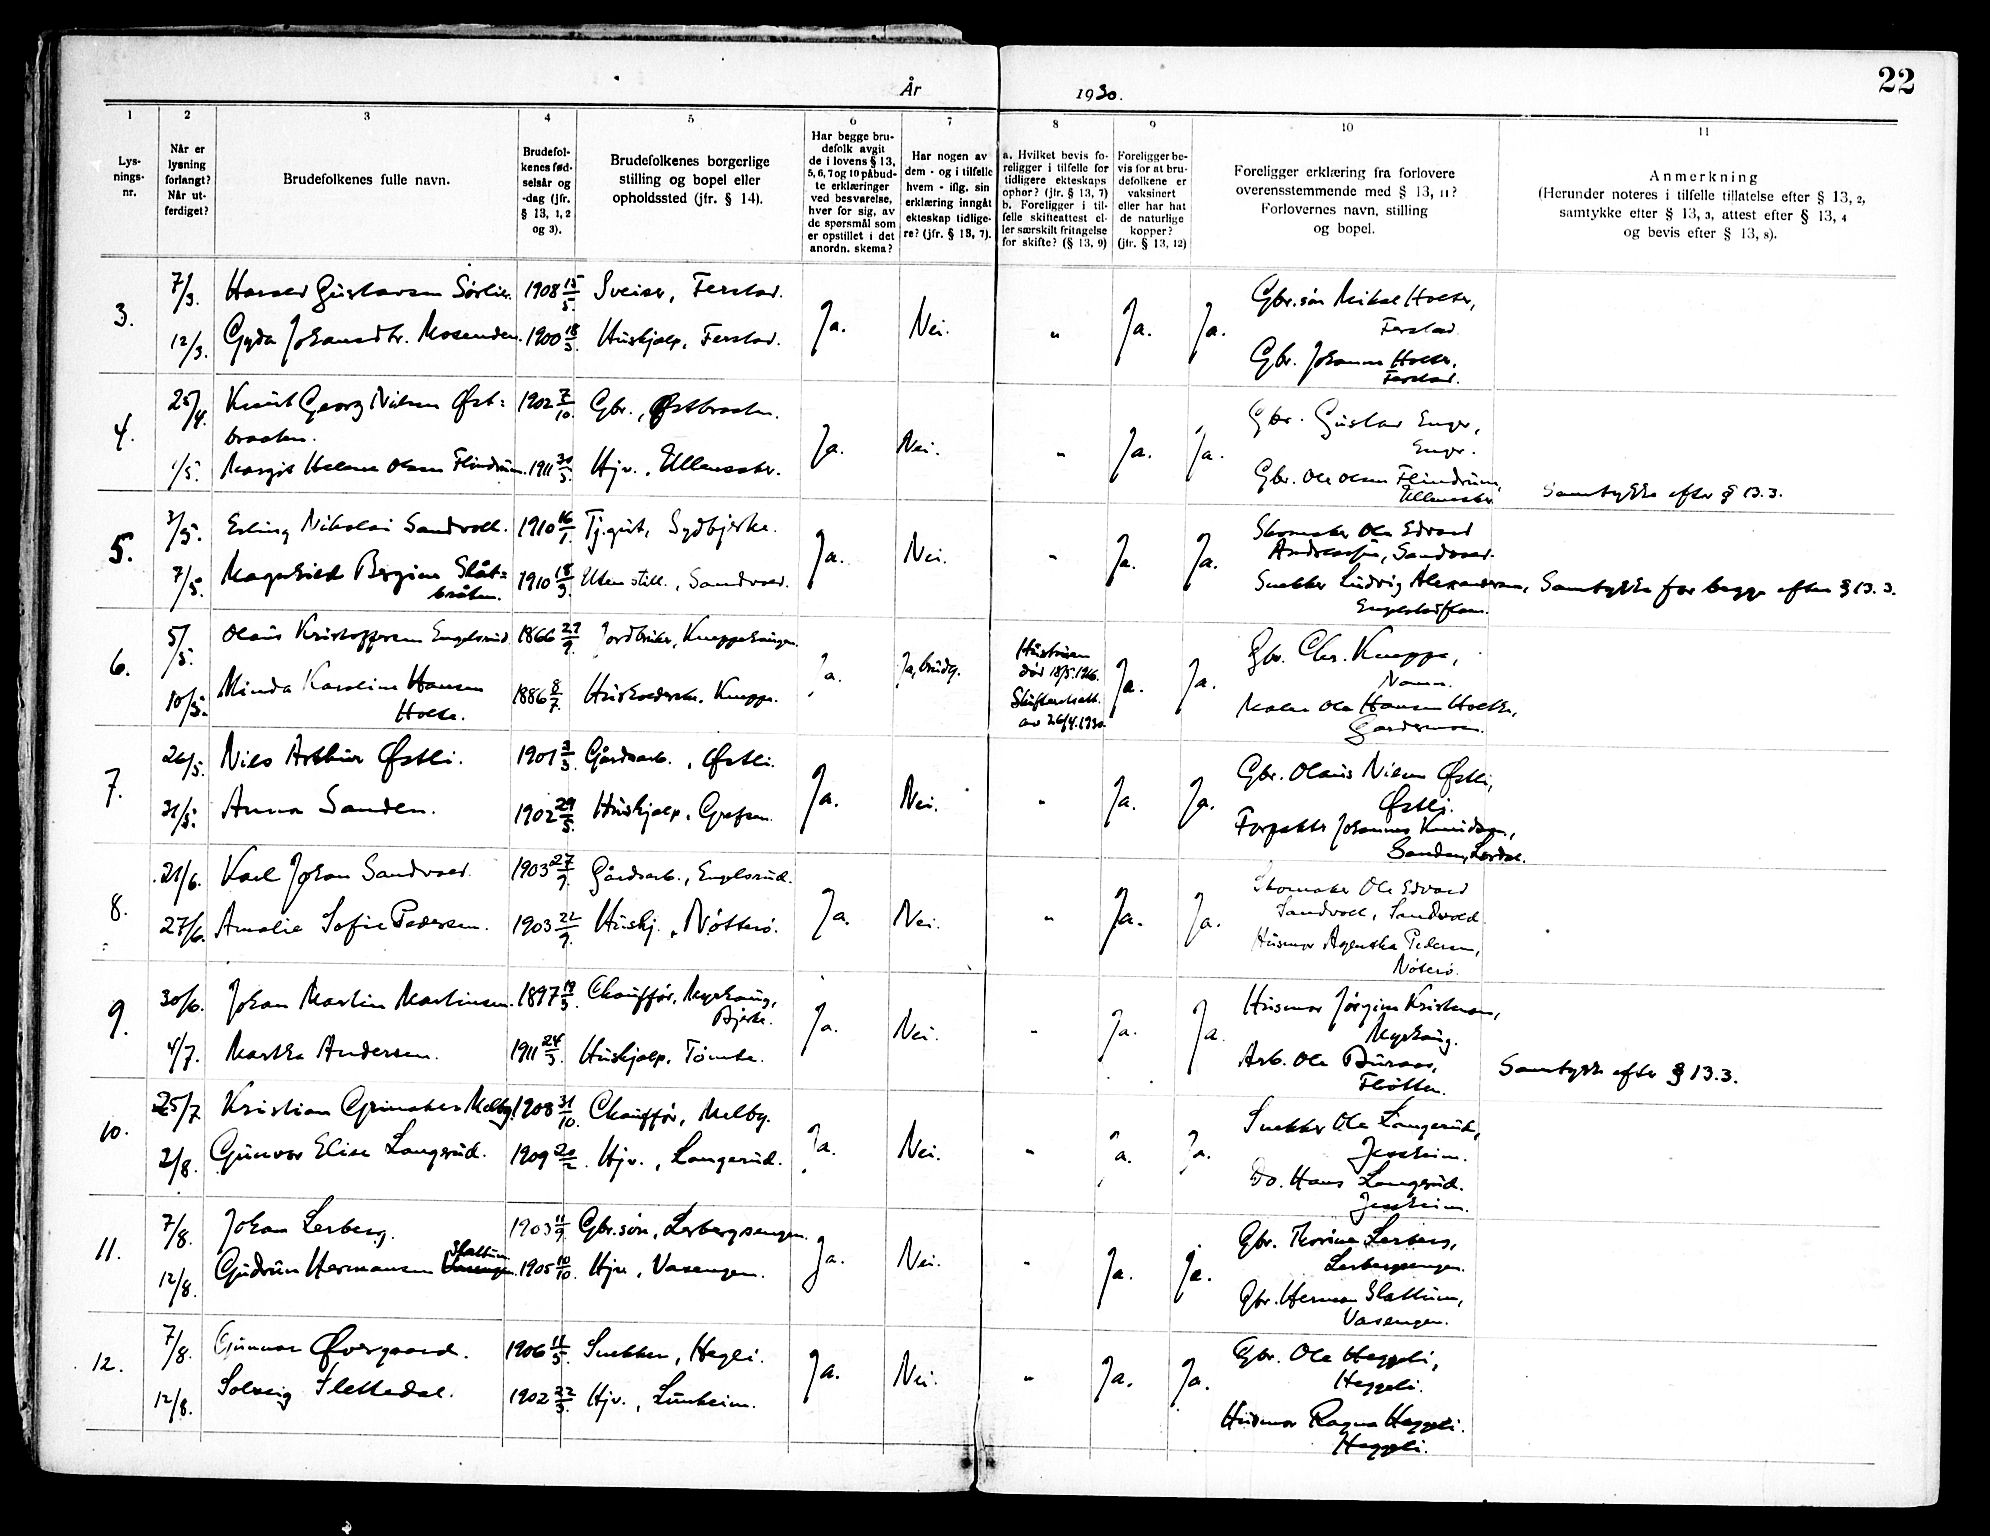 22
År 1930.
1 2 3 4 5 6 7 8 9 10 11
Lys-
nings-
nr.
Når er
lysning
forlangt?
Når ut-
ferdiget?
Brudefolkenes fulle navn.
Brudefol-
kenes fød-
selsår og
-dag (jfr.
§ 13, 1, 2
og 3).
Brudefolkenes borgerlige
stilling og bopel eller
opholdssted (jfr. § 14).
Har begge bru-
defolk avgit
de i lovens § 13,
5, 6, 7 og 10 påbud-
te erklæringer
ved besvarelse,
hver for sig, av
de spørsmål som
er opstillet i det
anordn. skema?
Har nogen av
dem - og i tilfelle
hvem - iflg. sin
erklæring inngått
ekteskap tidlige-
re? (jfr. § 13, 7).
a. Hvilket bevis fo-
religger i tilfelle for
tidligere ekteskaps
ophør? (jfr. § 13, 7)
b. Foreligger i til-
felle skifteattest el-
ler særskilt fritagelse
for skifte? (§ 13, 9)
Foreligger be-
vis for at bru-
defolkene er
vaksinert
eller har hat
de naturlige
kopper?
(jfr. § 13, 12)
Foreligger erklæring fra forlovere
overensstemmende med § 13, 11?
Forlovernes navn, stilling
og bopel.
Anmerkning
(Herunder noteres i tilfelle tillatelse efter § 13, 2,
samtykke efter § 13, 3, attest efter § 13, 4
og bevis efter § 13, 8).
3. 7/3. Harald Gustavsen Sørlie. 1908 15/5. Sveiser, Ferstad. Ja. Nei. " Ja. Ja. Gbr.søn Mikal Holter,
Ferstad.
12/3. Gyda Johansdtr. Mosenden. 1900 18/3. Hushjelp, Ferstad.
Gbr. Johannes Holter,
Ferstad.
4. 25/4. Knut Georg Nilsen Øst=
braaten. 1902 7/10. Gbr., Østbraaten. Ja. Nei. " Ja. Ja. Gbr. Gustav Enger,
Enger.
1/5. Margit Helene Olsen Flindrum. 1911 30/3. Hjv., Ullensaker.
Gbr. Ole Olsen Flindrum,
Ullensaker. Samtykke efter § 13.3.
5. 3/5. Erling Nikolai Sandvold. 1910 16/1. Tj.gut, Sydbjerke. Ja. Nei. " Ja. Ja. Skomaker Ole Edvard
Andreassen, Sandvold.
7/5. Magnhild Bergine Slåt=
bråten. 1910 18/3. Uten still., Sandvold.
Snekker Ludvig Alexandersen,
Samtykke for begge efter § 13.3.
6. 5/5. Olaus Kristoffersen Engelsrud. 1866 27/9. Jordbruker, Kneppehaugen. Ja. Ja, brudg. Hustruen
død 18/5.1926.
Skifteattest
av 26/4.1930. Ja. Ja. Gbr. Chr. Kneppe,
Nannes.
10/5. Minda Karoline Hansen
Holte. 1886 8/7. Husholderske, Kneppe.
Maler Ole Hansen Holte,
Gardermoen.
7. 26/5. Nils Arthur Østli. 1901 3/3. Gårdsarb., Østli. Ja. Nei. " Ja. Ja. Gbr. Olaus Nilsen Østli,
Østli.
31/5. Anna Sanden. 1902 29/5. Hushjelp, Grefsen.
Forpakter Johannes Knudsen,
8. 21/6. Karl Johan Sandvold. 1903 27/9. Gårdsarb., Engelsrud. Ja. Nei. " Ja. Ja. Skomaker Ole Edvard
Sandvold, Sandvold.
27/6. Amalie Sofie Pedersen. 1903 22/9. Hushj., Nøtterø.
Husmor Agentha Pedersen,
Nøterø.
9. 30/6. Johan Martin Martinsen. 1897 19/3. Chauffør, Myrhaug,
Bjerke. Ja. Nei. " Ja. Ja. Husmor Jørgine Kristensen,
Myrhaug.
4/7. Martha Andersen. 1911 24/3. Hushjelp, Tømte.
Arb. Ole Buraas,
Fløtten. Samtykke efter § 13.3.
10. 25/7. Kristian Grimaker Melby. 1908 31/10. Chauffør, Melby. Ja. Nei. " Ja. Ja. Snekker Ole Langerud,
Jessheim.
2/8. Gunvor Elise Langerud. 1909 20/2. Hjv., Langerud.
Do. Hans Langerud.
Jessheim.
11. 7/8. Johan Lerberg. 1903 11/9. Gbr.søn, Lerbergsengen. Ja. Nei. " Ja. Ja. Gbr. Thorine Lerberg,
Lerbergsengen.
Slattum
12/8. Gudrun Hermansen Vasengen. 1905 10/10. Hjv., Vasengen.
Gbr. Herman Slattum,
Vasengen.
12. 7/8. Gunnar Øvergaard. 1906 11/5. Snekker, Hegli. Ja. Nei. " Ja. Ja. Gbr. Ole Heggeli,
Heggeli.
12/8. Solveig Slettedal. 1902 22/3. Hjv., Lunheim.
Husmor Ragna Heggeli.
Heggeli.